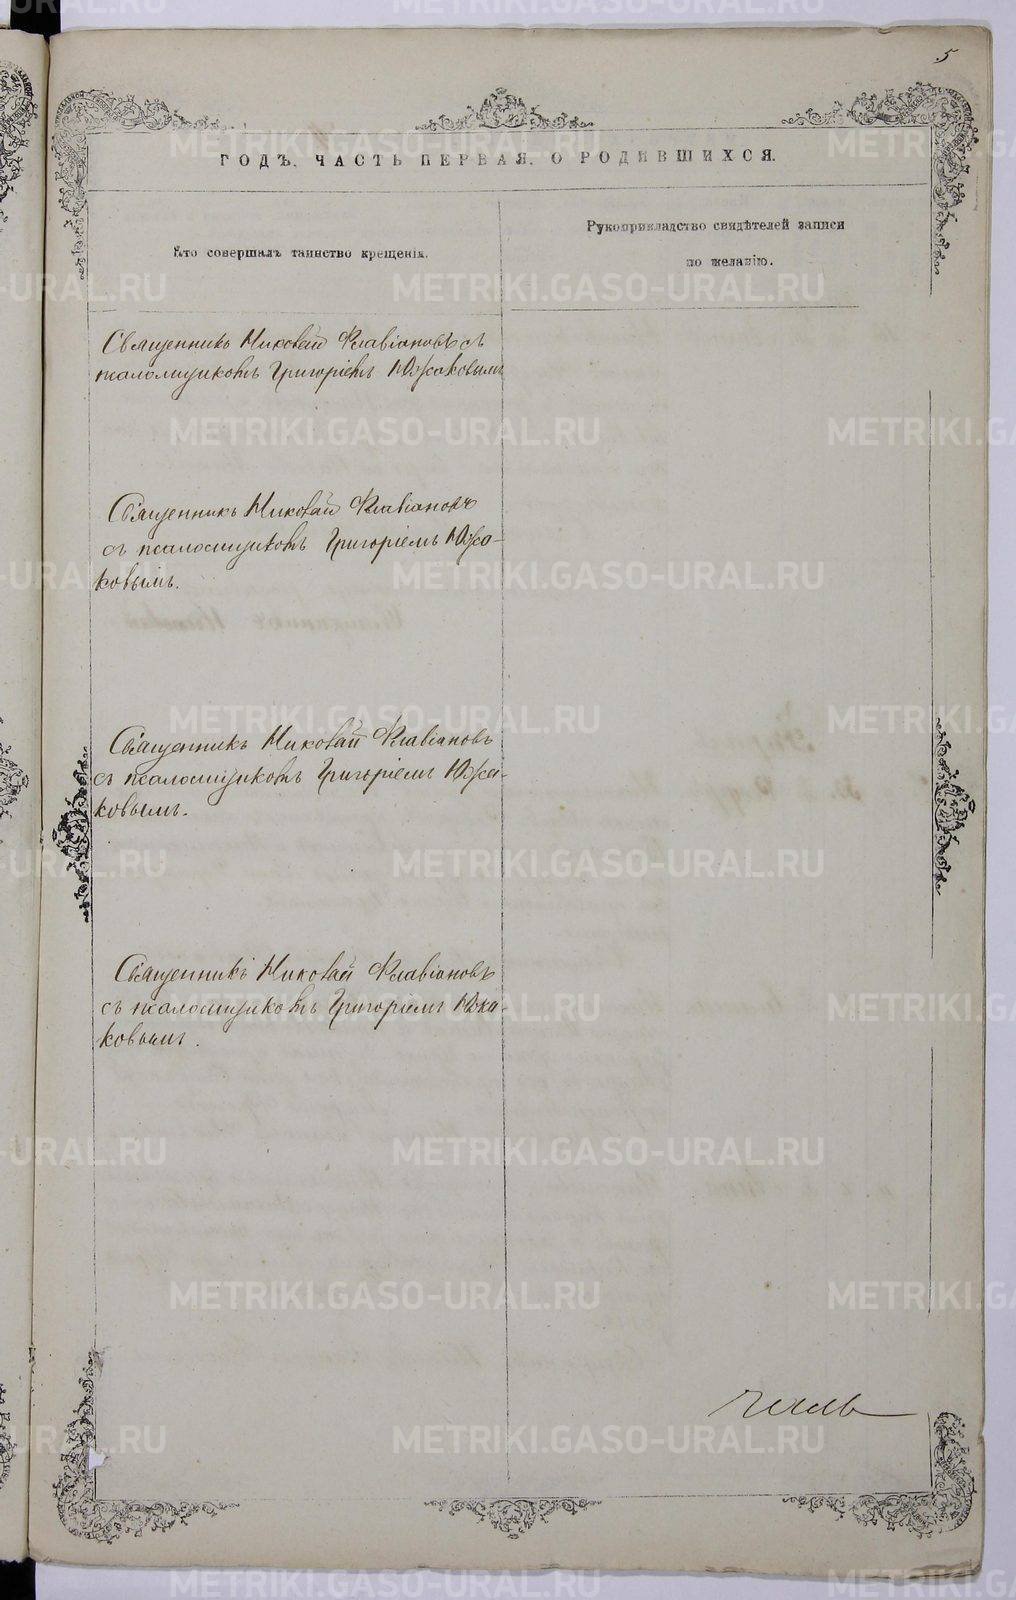 5
ГОДЪ. ЧАСТЬ ПЕРВАЯ. О РОДИВШИХСЯ.
Кто совершалъ таинство крещенія.
Рукоприкладство свидѣтелей записи
по желанію.
Священникъ Николай Флавіановъ съ
псаломщикомъ Григоріемъ Южаковымъ
Священникъ Николай Флавіановъ
съ псаломщикомъ Григоріемъ Южа-
ковымъ.
Священникъ Николай Флавіановъ
съ псаломщикомъ Григоріемъ Южа-
ковымъ.
Священникъ Николай Флавіановъ
съ псаломщикомъ Григоріемъ Южа-
ковымъ.
METRIKI.GASO-URAL.RU